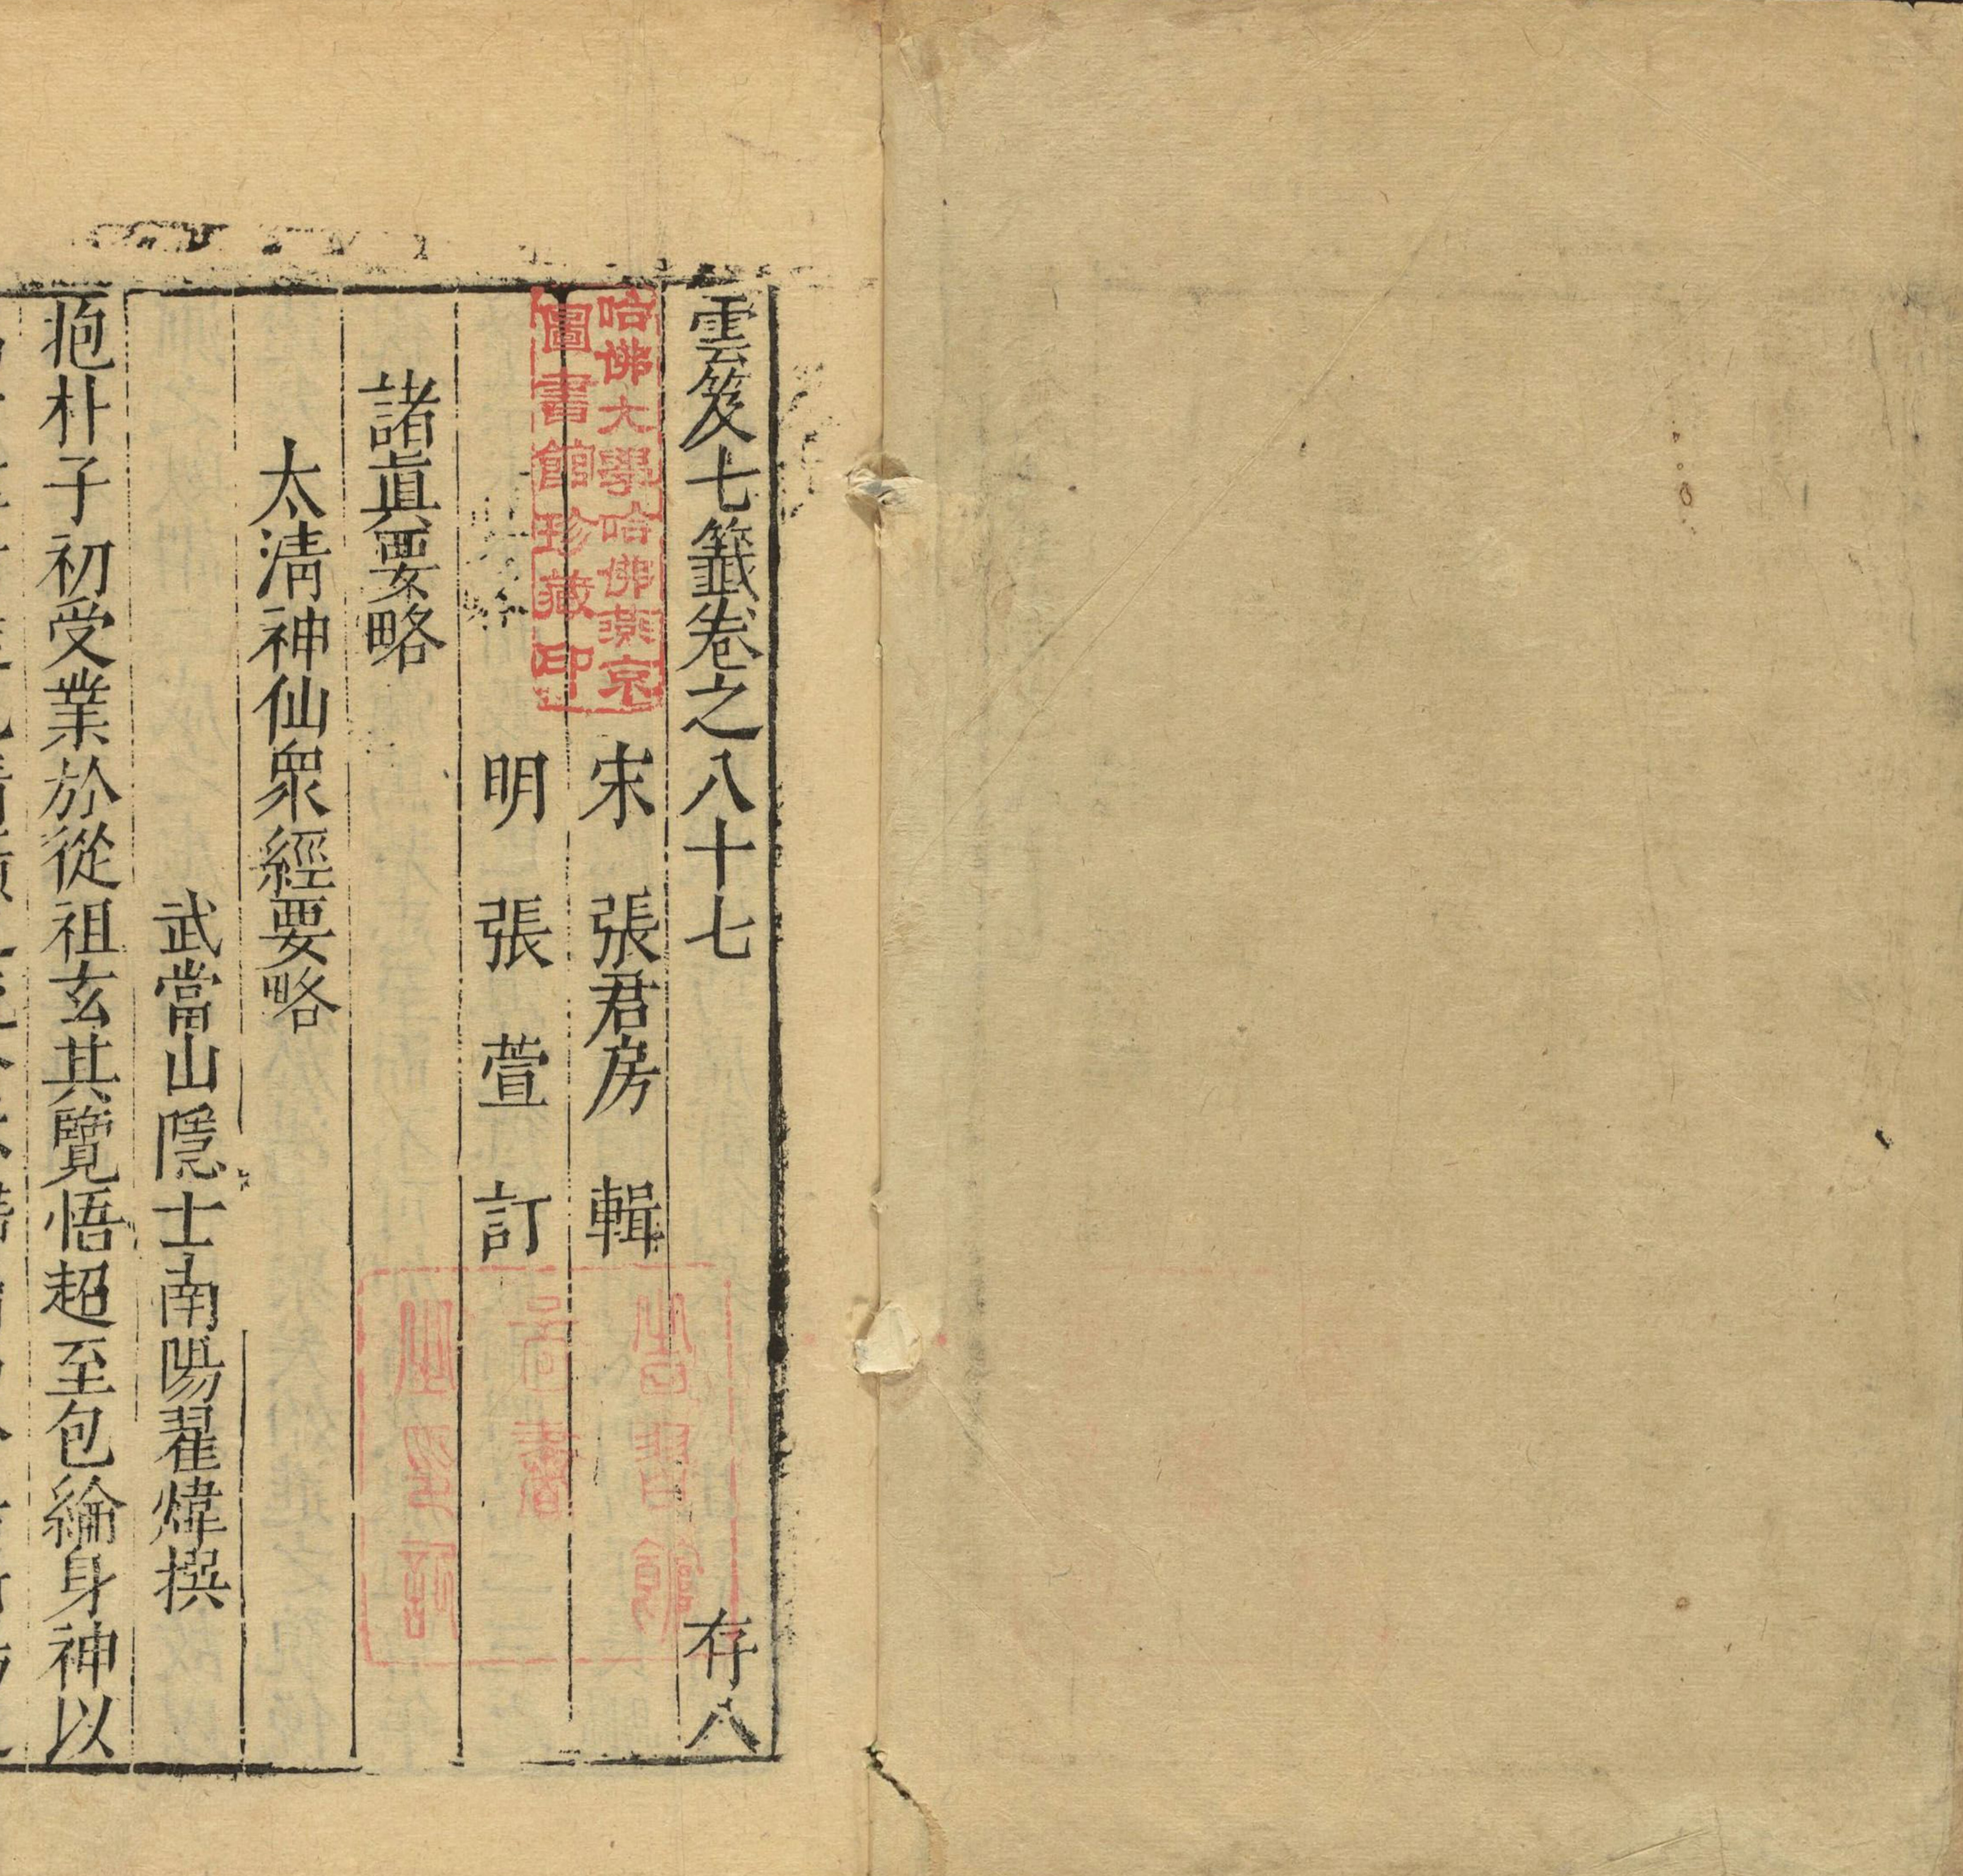 雲笈七籤卷之八十七 存八
宋 張君房 輯
明 張萱 訂
諸眞要略
太淸神仙衆經要略
武當山隱士南陽翟煒撰
抱朴子初受業於從祖玄其覽悟超至包綸身神以
哈佛大學哈佛燕京
圖書館珍藏印